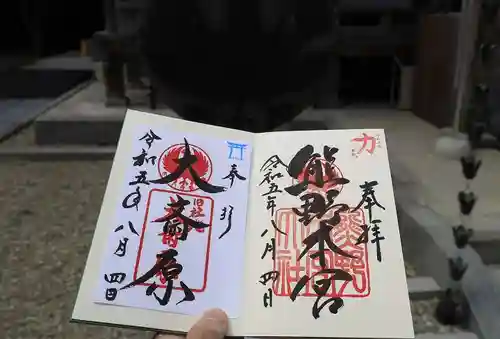 力
奉拝
熊野本宮
令和五年八月四日
奉拝
旧社
大斎原
令和五年八月四日